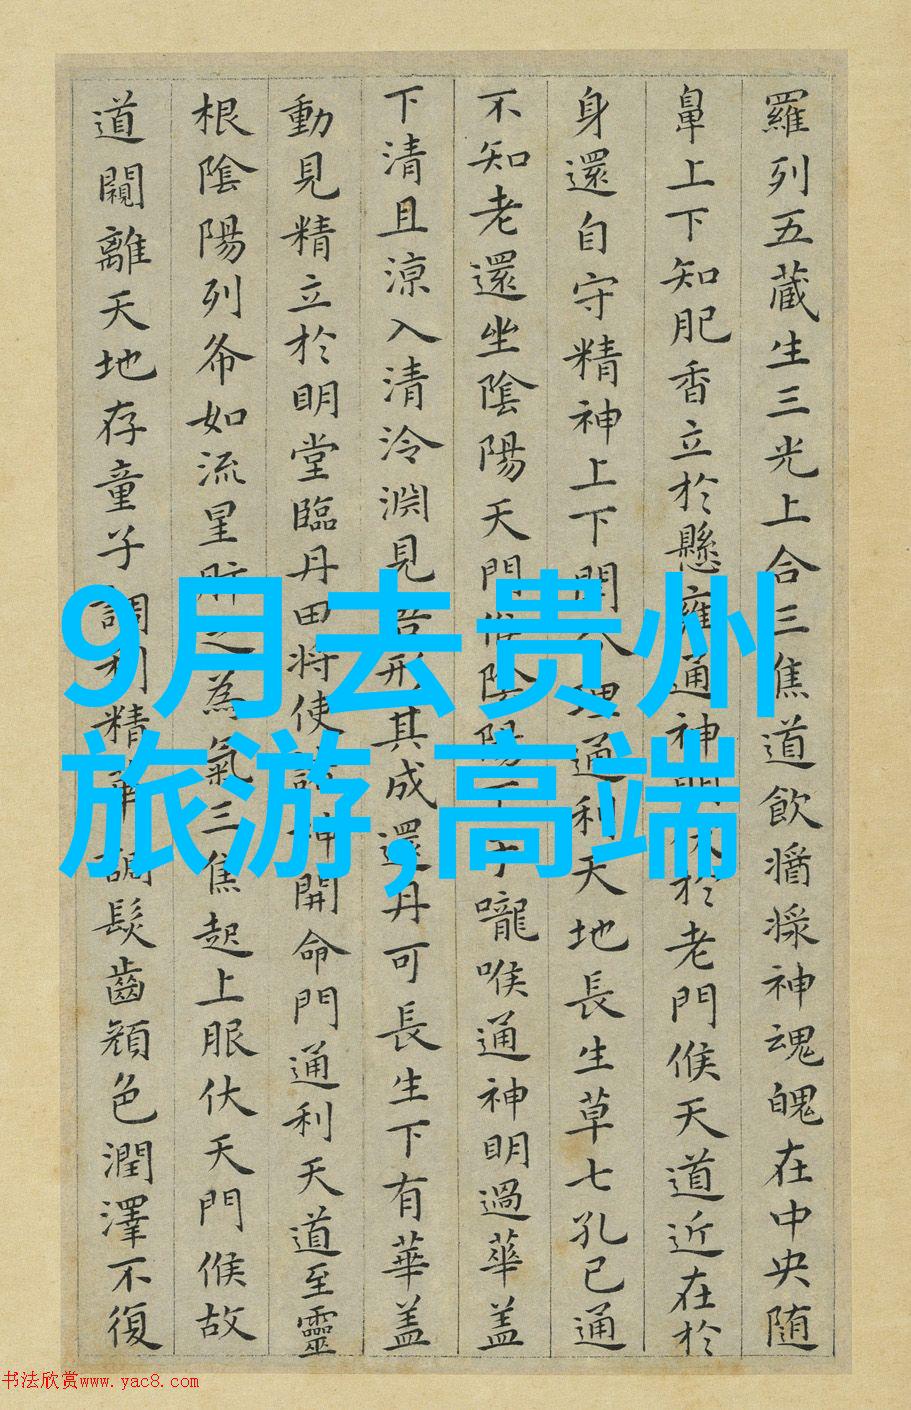 羅列五藏生三光上合三焦道飲醬漿神魂魄在中央随
鼻上下知肥香立於懸雍通神明伏於老門候天道近在於
身還自守精神上下開分理通利天地長生草七孔已通
不知老還坐陰陽天門候陰陽下于嚨喉通神明過華盖
下清且涼入清泠淵見吾形其成還丹可長生下有華盖
動見精立於明堂臨丹田将使諸神開命門通利天道至靈
根陰陽列布如流星肝之為氣三焦起上服伏天門候故
道闚離天地存童子調利精華調髮齒顔色潤澤不復
9月去贵州
旅游,高端
书法欣赏www.yac8.com